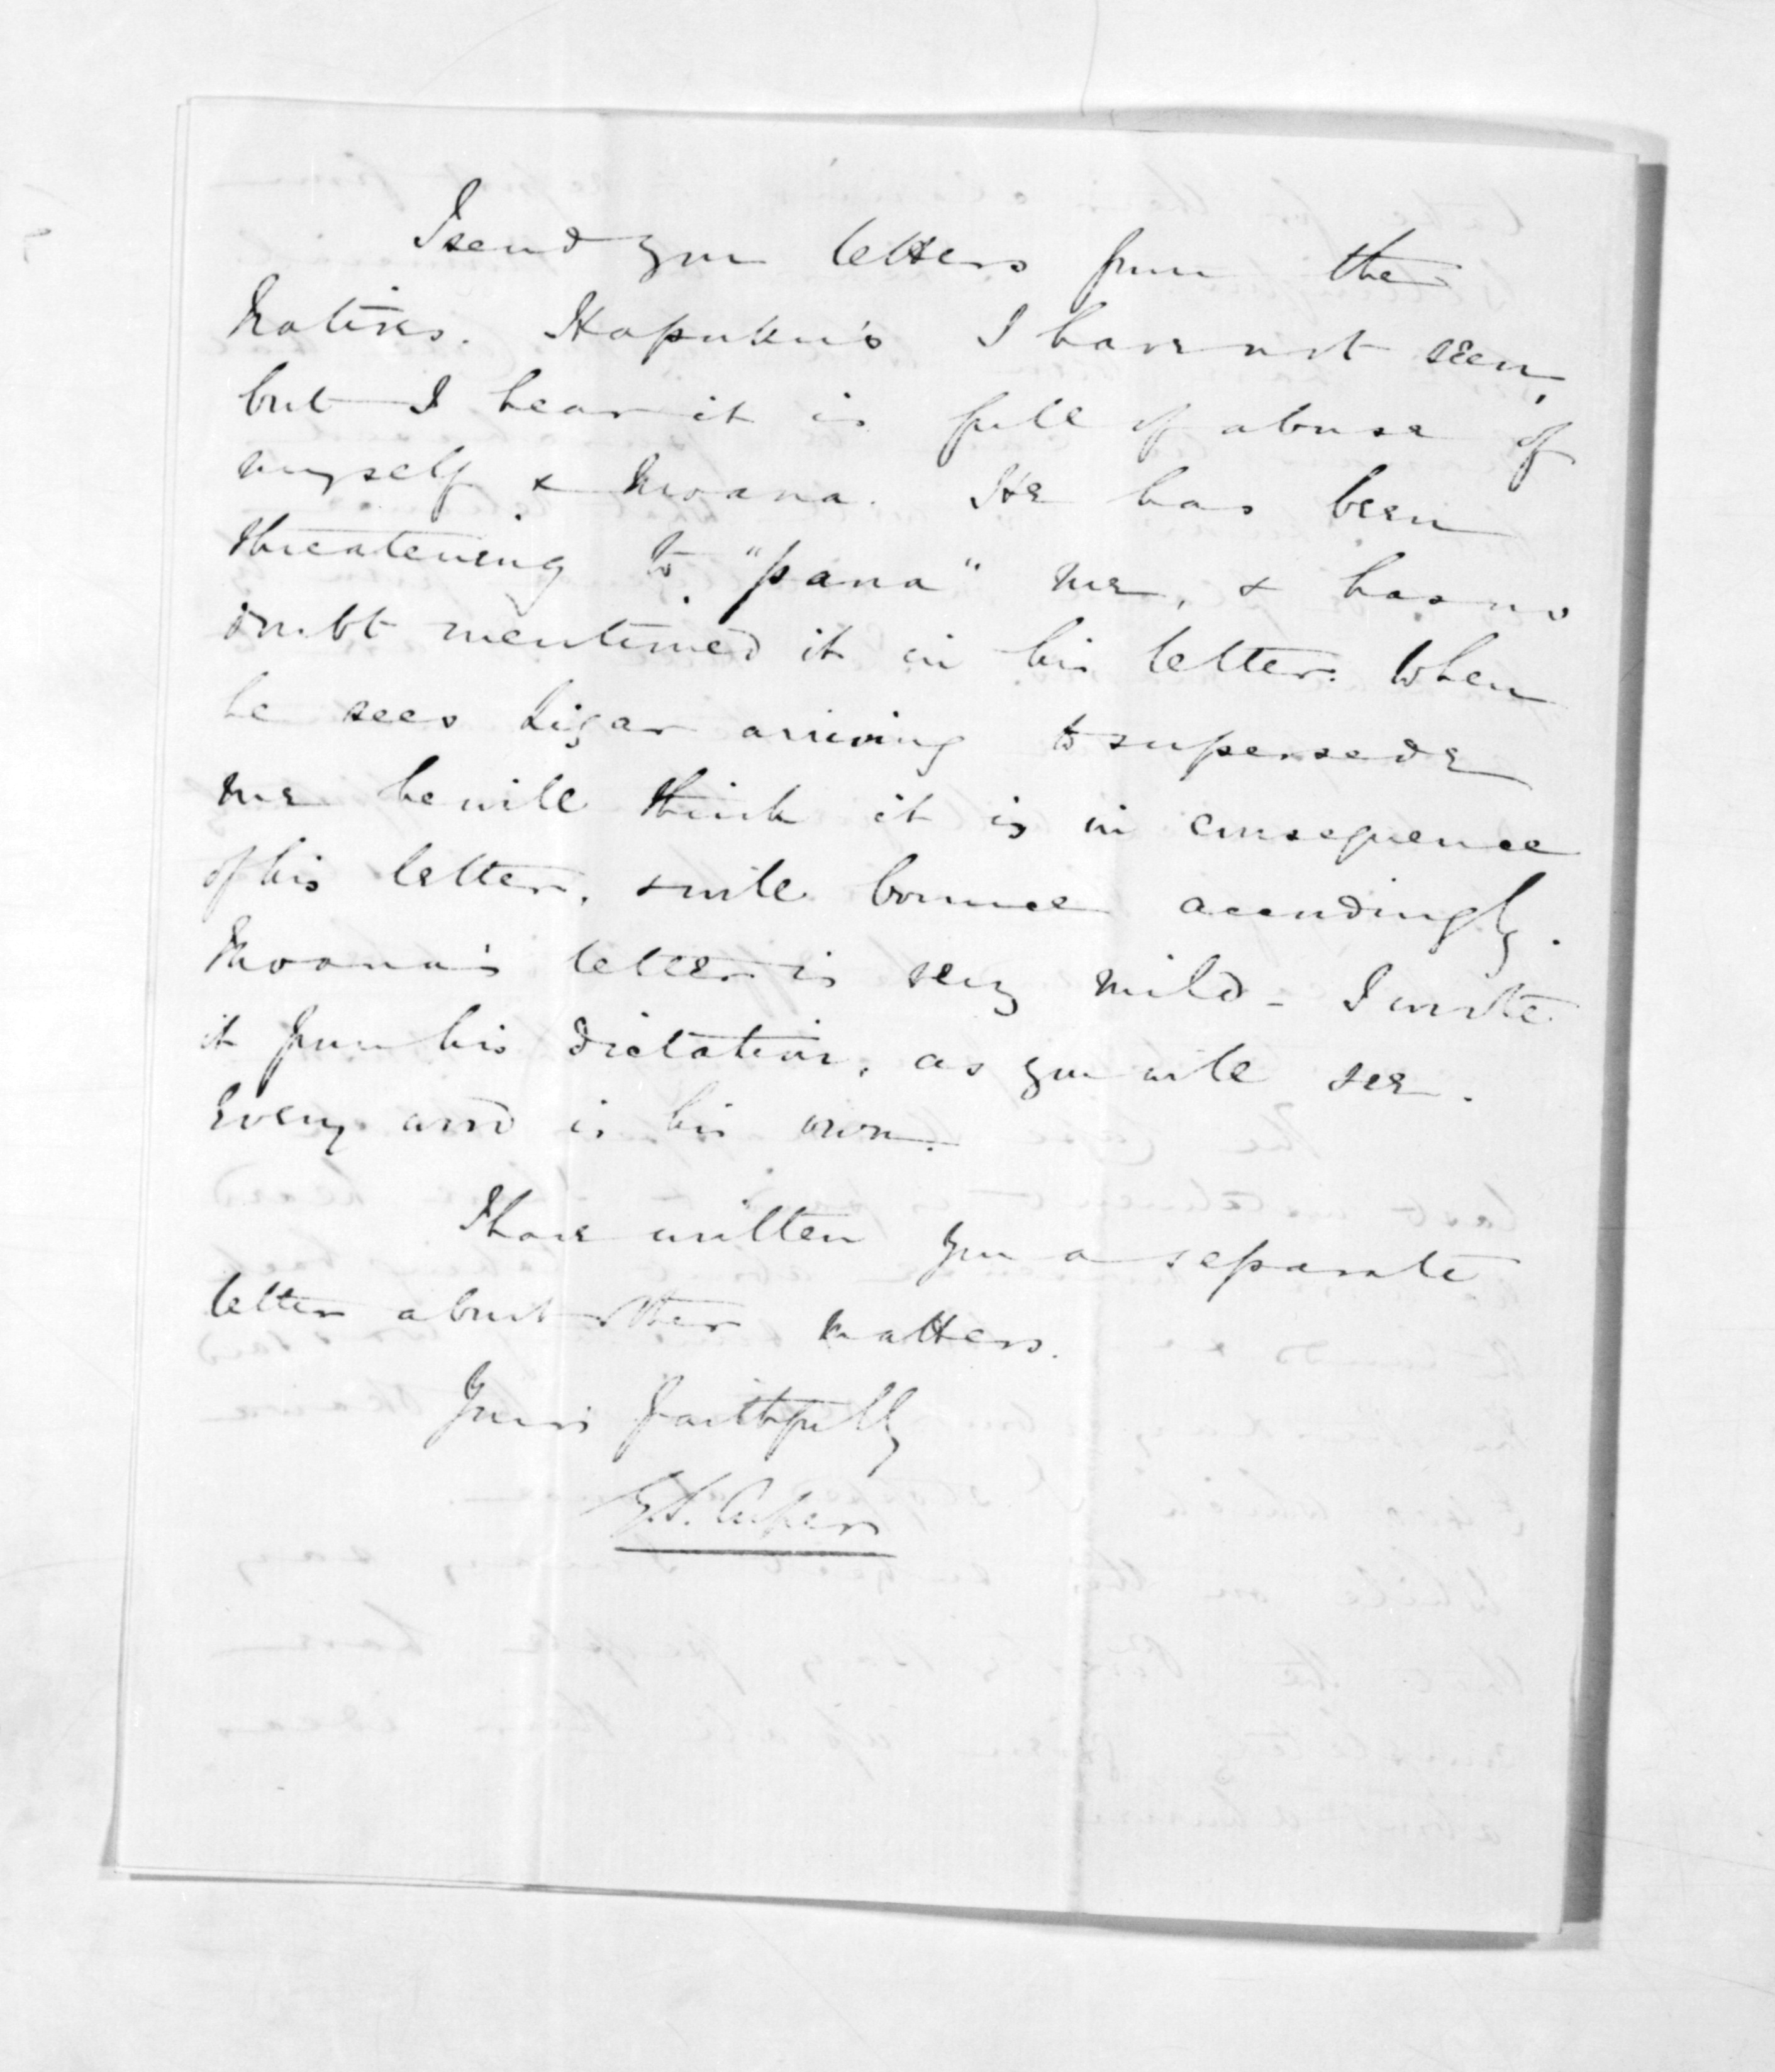 I send you letters from the
Natives. Hapuku's I have not seen,
but I hear it is full of abuse of
myself & Moana. He has been
threatening to "pana" me, & has no
doubt mentioned it in his letter. When
he sees Ligar arriving to supersede
me he will think it is in consequence
of his letter, & will bounce accordingly.
Moana's letter is very mild - I wrote
it from his dictation, as you will see.
Every word is his own.
I have written you a separate
letter about other matters.
Yours faithfully
G.S. Cooper